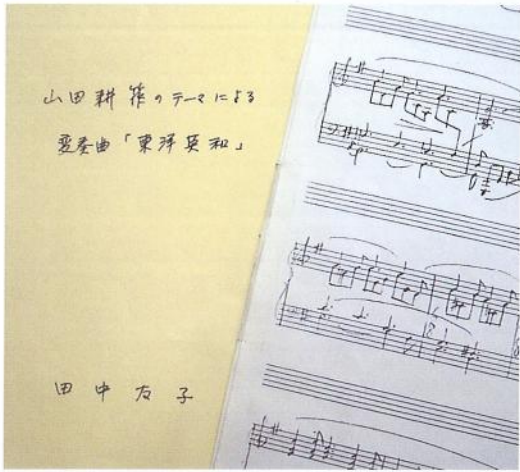 山田耕筰のテーマによる
変奏曲「東洋英和」
田中友子